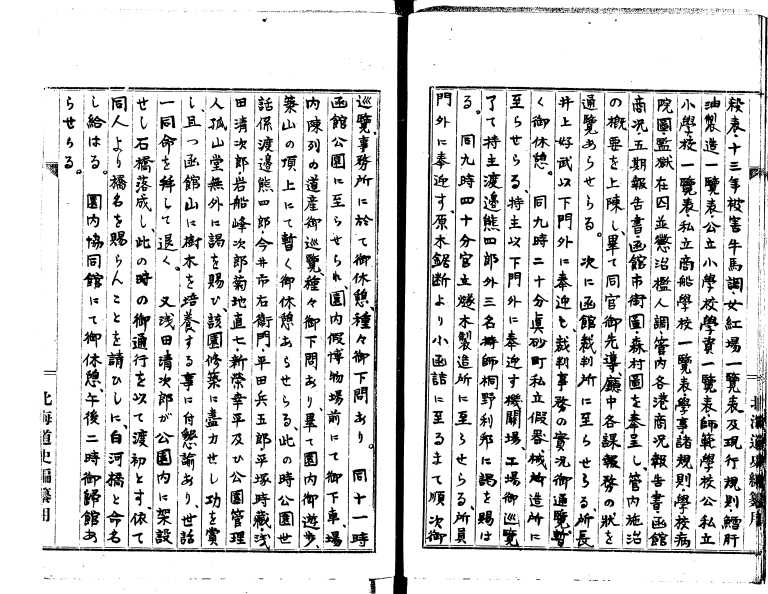 穀表・十三年被害牛馬調・女紅場一覧表及現行規則・鱈肝
油製造一覧表・公立小學校學資一覧表・師範學校公私立
小學校一覧表・私立商船學校一覧表・學事諸規則・學校病
院圖・監獄在囚並懲治檻人調・管内各港商况報告書・函館
商况五期報告書・函館市街圖・森村圖を奉呈し、管内施治
の概要を上陳し、畢て同官御先導、廳中各課服務の狀を
通覽あらせらる。次に函館裁判所に至らせらる。所長
井上好武以下門外に奉迎し、裁判事務の實況御通覽、暫
く御休憩。同九時二十分眞砂町私立假器械所造所に
至らせらる。持主以下門外に奉迎す。機關場、工場御巡覽
了て持主渡邊熊四郎外三名、技師桐野利邦に謁を賜は
る。同九時四十分官立燧木製造所に至らせらる、所員
門外に奉迎す。原木鋸断より小函詰に至るまて順次御
巡覽、事務所に於て御休憩、種々御下問あり。同十一時
函館公園に至らせられ、園内假博物場前にて御下車、場
内陳列の道産御巡覽、種々御下問あり、畢て園内御遊歩、
築山の頂上にて暫く御休憩あらせらる。此の時公園世
話係渡邊熊四郎・今井市右衛門・平田兵五郎・平塚時藏・浅
田清次郎・岩船峰次郎・菊地直七・新榮幸平及ひ公園管理
人孤山堂無外に謁を賜ひ、該園修築に盡力せし功を賞
し、且つ函館山に樹木を培養する事に付懇諭あり、世話
一同命を拜して退く。又浅田清次郎が公園内に架設
せし石橋落成し、此の時の御通行を以て渡初とす、依て
同人より橋名を賜らんことを請ひしに、白河橋と命名
し給はる。園内協同館にて御休憩、午後二時御歸館あ
らせらる。
北海道史編纂用
北海道史編纂用